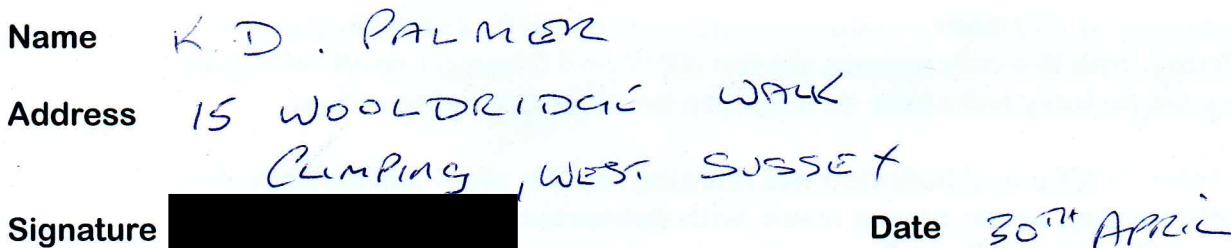 Name K. D. PALMER
Address 15 WOOLDRIDGE WALK
CLIMPING, WEST SUSSEX
Signature Date 30TH APRIL